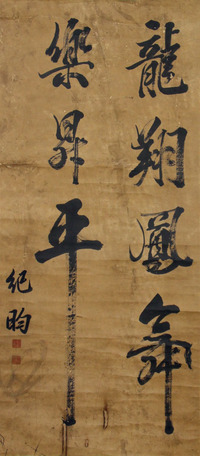 龍翔鳳舞
樂昇平
紀昀